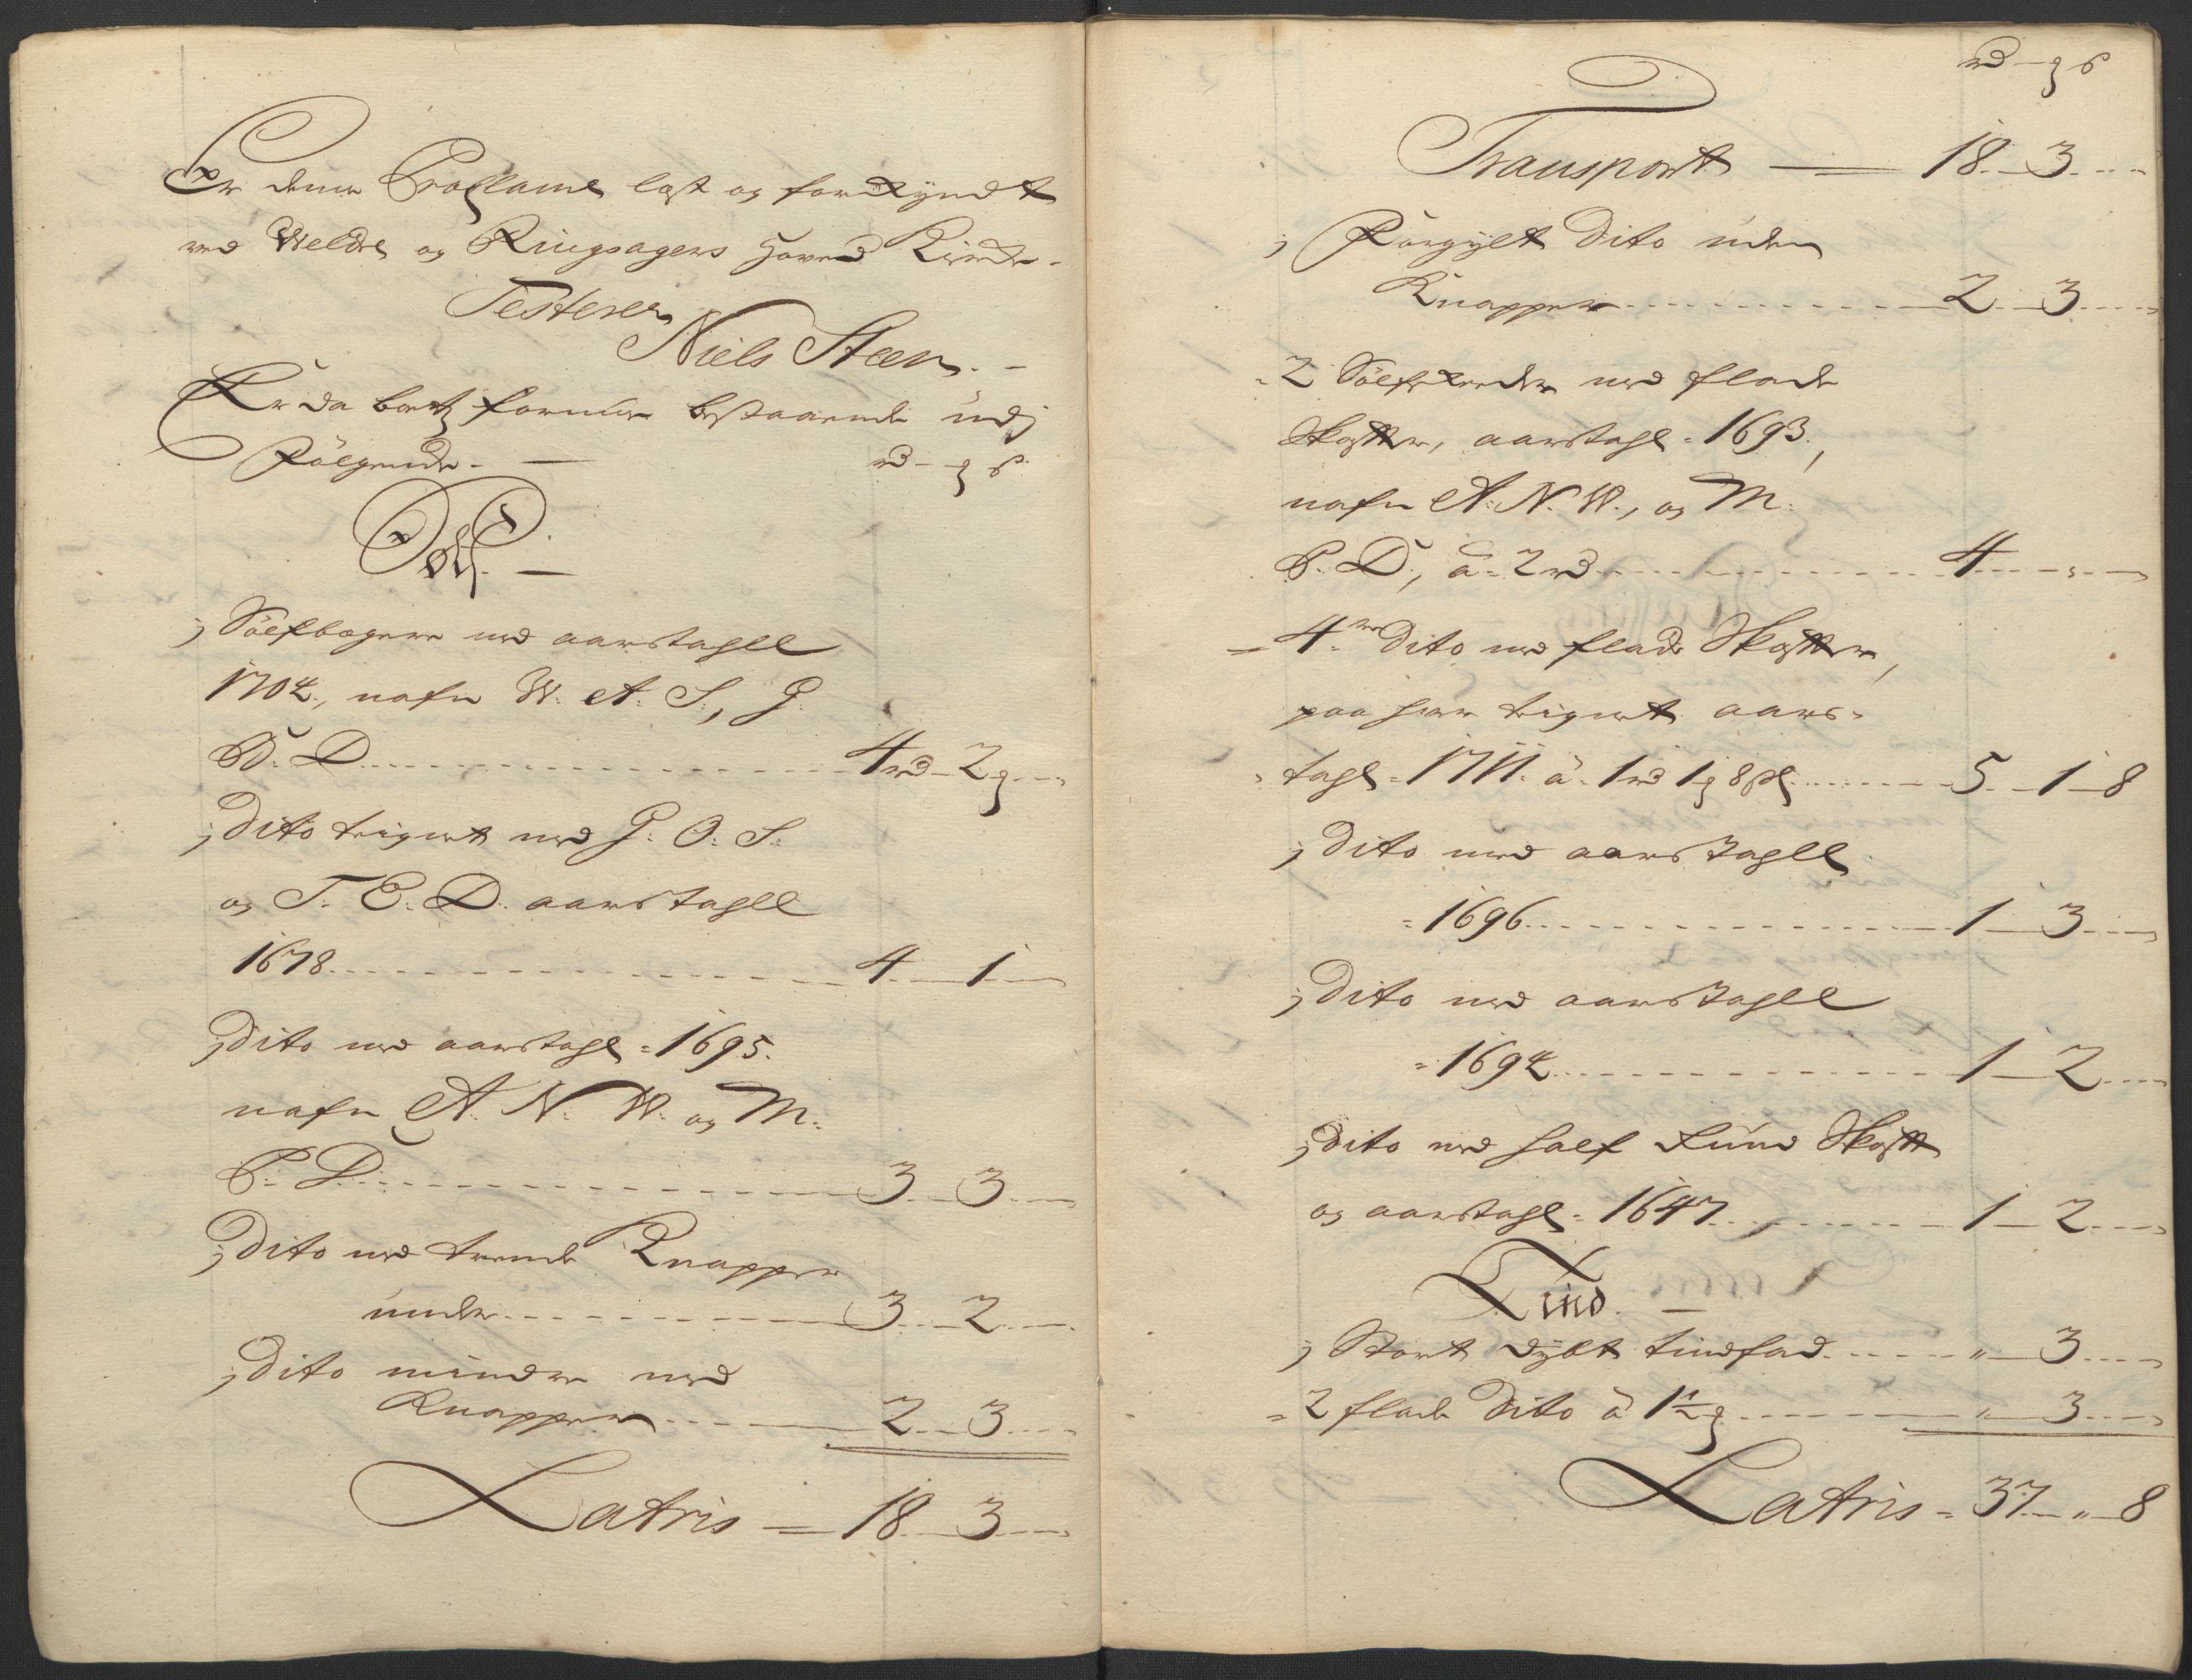 Er denne Proclama læst og forkyndt
ved Weldre og Ringsagers Hoved Kirke.
Testerer
Niels Steen.
Er da boets formue bestaaende udj
Følgende. rd - ʒ ß
Sølf.
1 Sølfbægere med aarstagll
1704., nafn W. A. S., G.
B. D. 4 rd - 2 ʒ
1 Dito teignet med G. O. S.
og T. E. D. aarstagll
1678. 4 - 1
1 Dito med aarstagl = 1695.
nafn A. N. W. og M.
P. D. 3 - 3
1 Dito med trende Knapper
under 3 - 2
1 Dito mindre med
Knapper 2 - 3
Lateris = 18 - 3
rd - ʒ ß
Transport 18 - 3
1 Forgylt Dito uden
Knapper 2 - 3
2 Sølfskeeder med flade
Skaftter, aarstagl = 1693,
nafn A. N. W., og M.
P. D., à 2 rd 4
4re Dito med flade Skaftter,
paa hver teignet aars=
tagl = 1711. à 1 rd 1 ʒ 8 ßl 5 - 1 - 8
1 Dito med aarstagll
= 1696 1 - 3
1 Dito med aarstagll
= 1694 1 - 2
1 Dito med half rund Skaftt
og aarstagl = 1647 1 - 2
Tind.
1 Stort dybt tindfad " - 3
2 flade Dito à 1½ ʒ " - 3
Lateris = 37 - " - 8